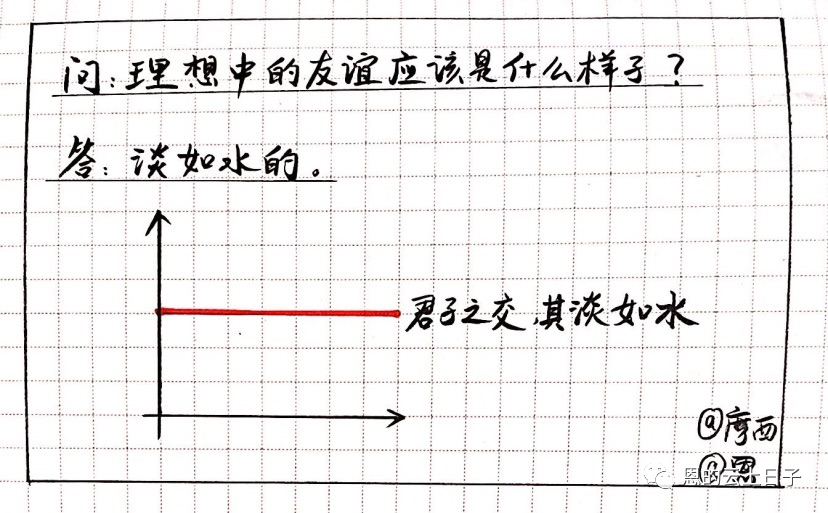 问:理想中的友谊应该是什么样子?
答:谈如水的。
君子之交,其淡如水
@摩西
@恩
恩的云上日子